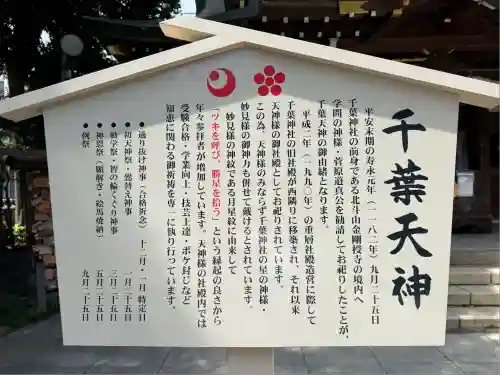 千葉天神
平安末期の寿永元年(一一八二年)九月二十五日
千葉神社の前身である北斗山金剛授寺の境内へ
学問の神様・菅原道真公を勧請してお祀りしたことが、
千葉天神の御由緒となります。
平成二年(一九九〇年)の重層社殿造営に際して
千葉神社の旧社殿が西隣りに移築され、それ以来
天神様の御社殿としてお祀りされています。
この為、天神様のみならず千葉神社の星の神様・
妙見様の御神力も併せて戴けるとされています。
妙見様の神紋である月星紋に由来して
「ツキを呼び、勝星を拾う」という縁起の良さから
年々参拝者が増加しています。天神様の社殿内では
受験合格・学業向上・技芸上達・ボケ封じなど
知恵に関わる御祈祷を専一に執り行っています。
●通り抜け神事(合格祈念) 十二月・一月 特定日
●初天神祭・鷽替え神事 一月二十五日
●勧学祭・智の輪くぐり神事 三月二十五日
●神恩祭(願解き・絵馬焼納) 五月二十五日
●例祭 九月二十五日